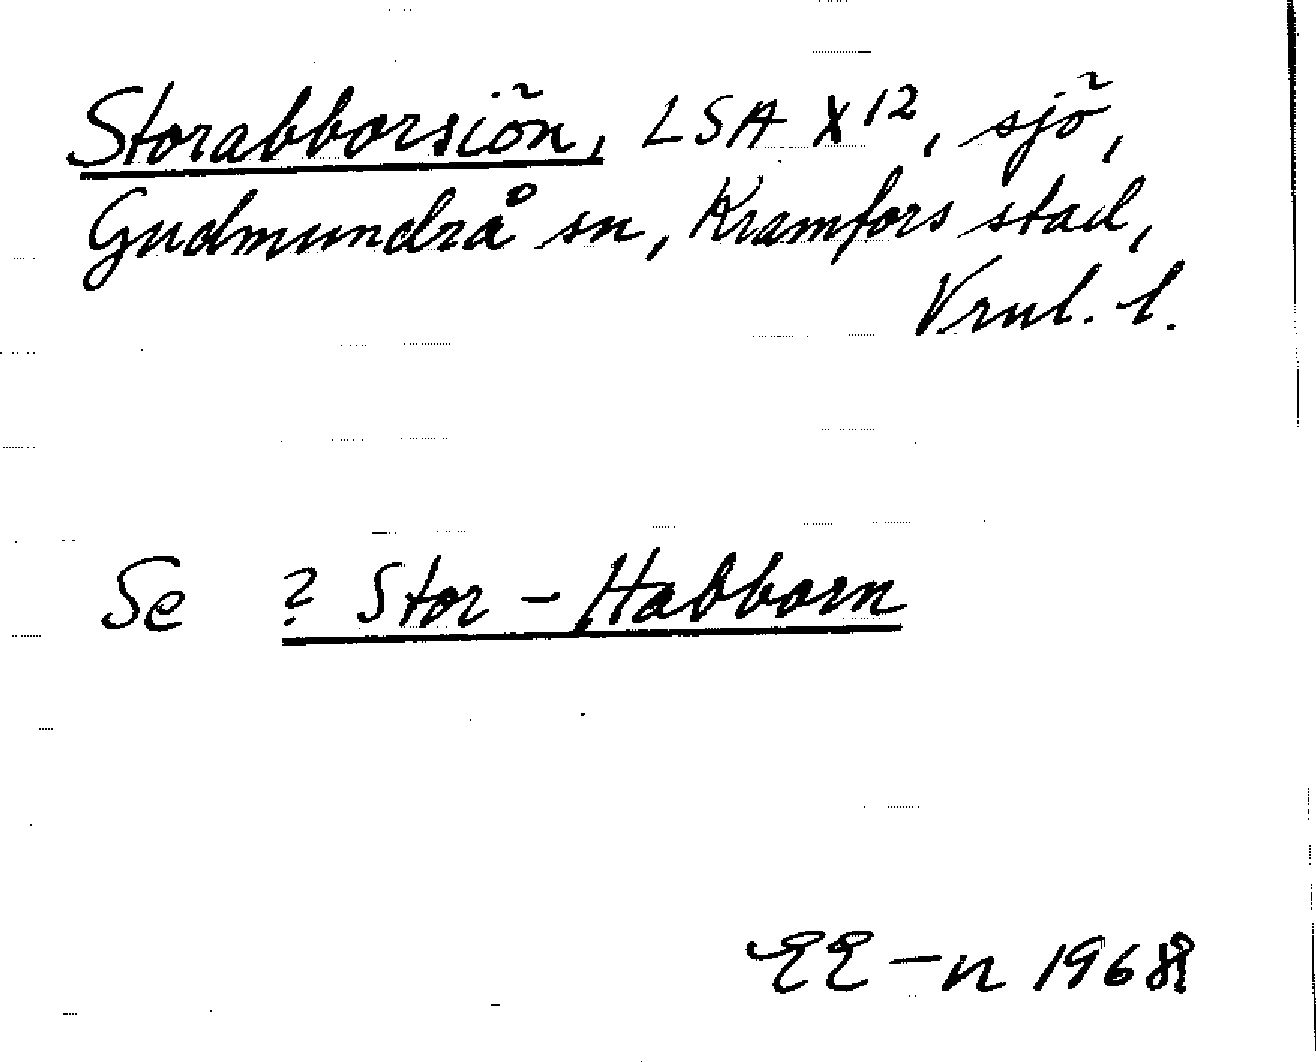 Storabborsiön, LSA X 12, sjö,
Gudmundrå sn, Kramfors stad,
Vrnl. l.
Se ? Stor-Habborn
EE-n 1968